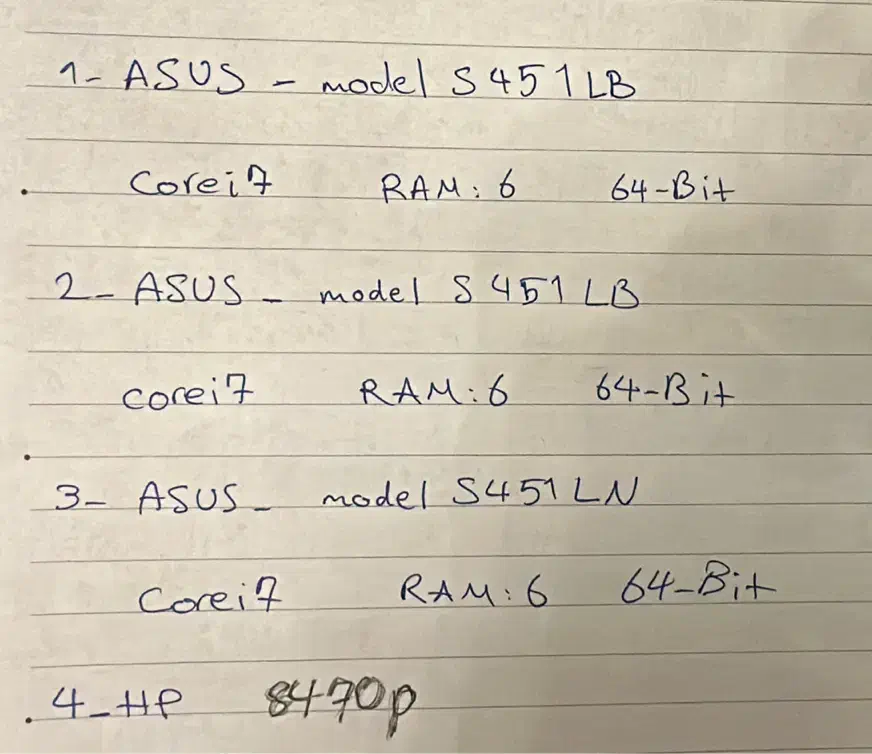 1- ASUS - model S451LB
Corei7 RAM: 6 64-Bit
2- ASUS - model S451LB
corei7 RAM: 6 64-Bit
3- ASUS - model S451LN
Corei7 RAM: 6 64-Bit
4-HP 8470p